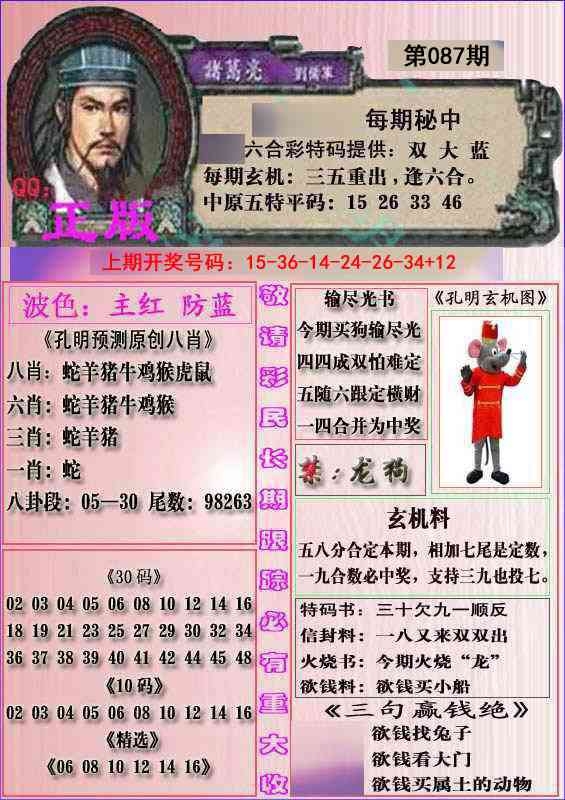 第087期
諸葛亮 劉儒軍
每期秘中
六合彩特码提供：双 大 蓝
每期玄机：三五重出,逢六合。
中原五特平码：15 26 33 46
QQ：
正版
上期开奖号码：15-36-14-24-26-34+12
波色：主红 防蓝
《孔明预测原创八肖》
八肖：蛇羊猪牛鸡猴虎鼠
六肖：蛇羊猪牛鸡猴
三肖：蛇羊猪
一肖：蛇
八卦段：05—30 尾数：98263
《30码》
02 03 04 05 06 08 10 12 14 16
18 19 21 23 25 27 29 30 32 34
36 37 38 39 40 41 42 44 45 48
《10码》
02 03 04 05 06 08 10 12 14 16
《精选》
《06 08 10 12 14 16》
敬请彩民长期跟踪必有重大收
输尽光书
今期买狗输尽光
四四成双怕难定
五随六跟定横财
一四合并为中奖
《孔明玄机图》
禁：龙狗
玄机料
五八分合定本期，相加七尾是定数，
一九合数必中奖，支持三九也投七。
特码书：三十欠九—顺反
信封料：一八又来双双出
火烧书：今期火烧“龙”
欲钱料：欲钱买小船
《三句赢钱绝》
欲钱找兔子
欲钱看大门
欲钱买属土的动物